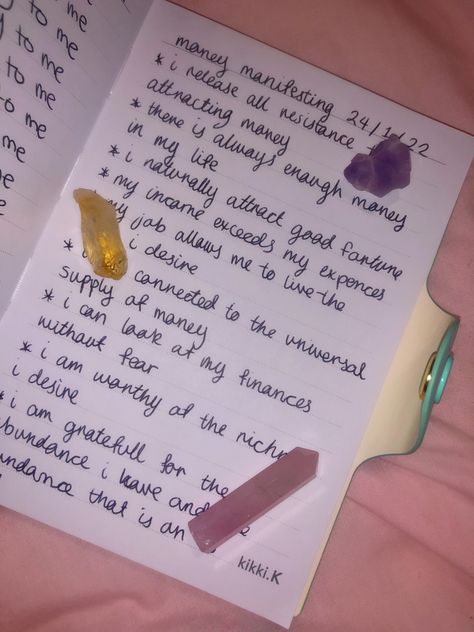 to me
to me
to me
to me
me
to me
money manifesting 24/1/22
* i release all resistance
attracting money
* there is always enough money
in my life
* i naturally attract good fortune
* my income exceeds my expences
my job allows me to live the
i desire
* connected to the universal
supply of money
* i can look at my finances
without fear
* i am worthy of the
i desire
* i am gratefull for the
abundance i have and
that is
kikki.K